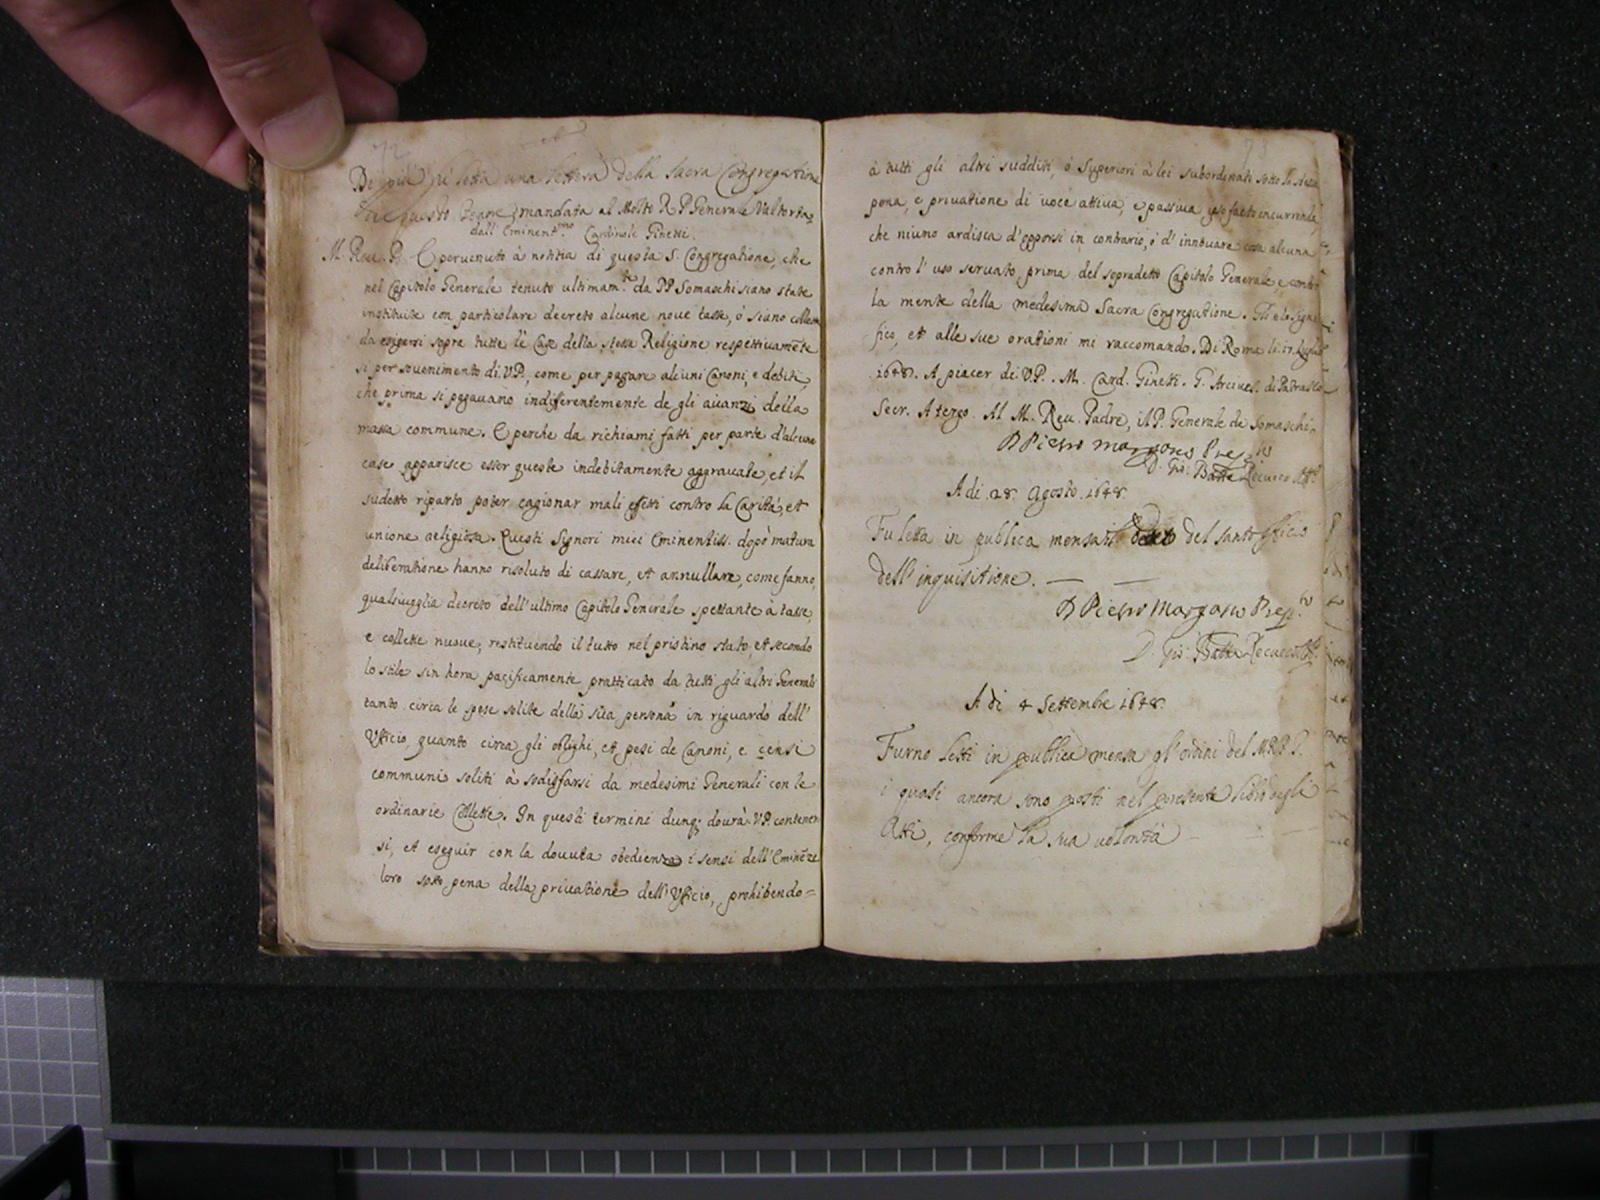 72
Di più fù letta una lettera della Sacra Congregatione
di questo tenore mandata al Molto R P Generale Valtorta
dall' Eminent.mo Cardinale Ginetti.
M. Reu. P. E peruenuto à notitia di questa S. Congregatione, che
nel Capitolo Generale tenuto ultimam.te da PP Somaschi siano state
instituite con particolare decreto alcune noue tasse, ò siano collette
da esigersi sopra tutte le Case della stessa Religione respettiuamēte
si per souenimento di V.P., come per pagare alcuni Canoni, e debiti,
che prima si pagauano indifferentemente de gli auanzi della
massa commune. E perche da richiami fatti per parte d'alcune
case apparisce esser queste indebitamente aggrauate, et il
sudetto riparto poter cagionar mali effetti contro la Carità, et
unione religiosa. Questi Signori miei Eminentiss. dopò matura
deliberatione hanno risoluto di cassare, et annullare, come fanno,
qualsiuoglia decreto dell' ultimo Capitolo Generale spettante à tasse,
e collette nuoue, restituendo il tutto nel pristino stato, et secondo
lo stile sin hora pacificamente pratticato da tutti gli altri Generali
tanto circa le spese solite della sua persona in riguardo dell'
Ufficio, quanto circa gli oblighi, et pesi de Canoni, e censi
communi soliti à sodisfarsi da medesimi Generali con le
ordinarie Collette. In questi termini dunq; dourà V.P. contener
si, et eseguir con la douuta obedienza i sensi dell' Eminēze
loro sotto pena della priuatione dell' Ufficio, prohibendo=
73
à tutti gli altri sudditi, ò Superiori à lei subordinati sotto la stessa
pena, e priuatione di uoce attiua, e passiua ipso facto incurrenda,
che niuno ardisca d'opporsi in contrario, ò d' innouare cosa alcuna
contro l' uso seruato, prima del sopradetto Capitolo Generale, e contro
la mente della medesima Sacra Congregatione. Gli e lo signi
fico, et alle sue orationi mi raccomando. Di Roma li 17 Luglio
1648. A piacer di V.P. . M. Card. Ginetti. G. Arciues. di Patrasso
Secr. A tergo. Al M. Reu. Padre, il P. Generale de Somaschi.
D Pietro
D. Gio: Batta
A di 28. Agosto. 1648.
Fu letta in publica mensa il del santo officio
dell' inquisitione.
D Pietro
D. Gio: Batta
A di 4 Settembre 1648.
Furno letti in publica mensa gl' ordini del M.R.P.
i quali ancora sono posti nel presente libro degli
Atti, conforme la sua uolontà